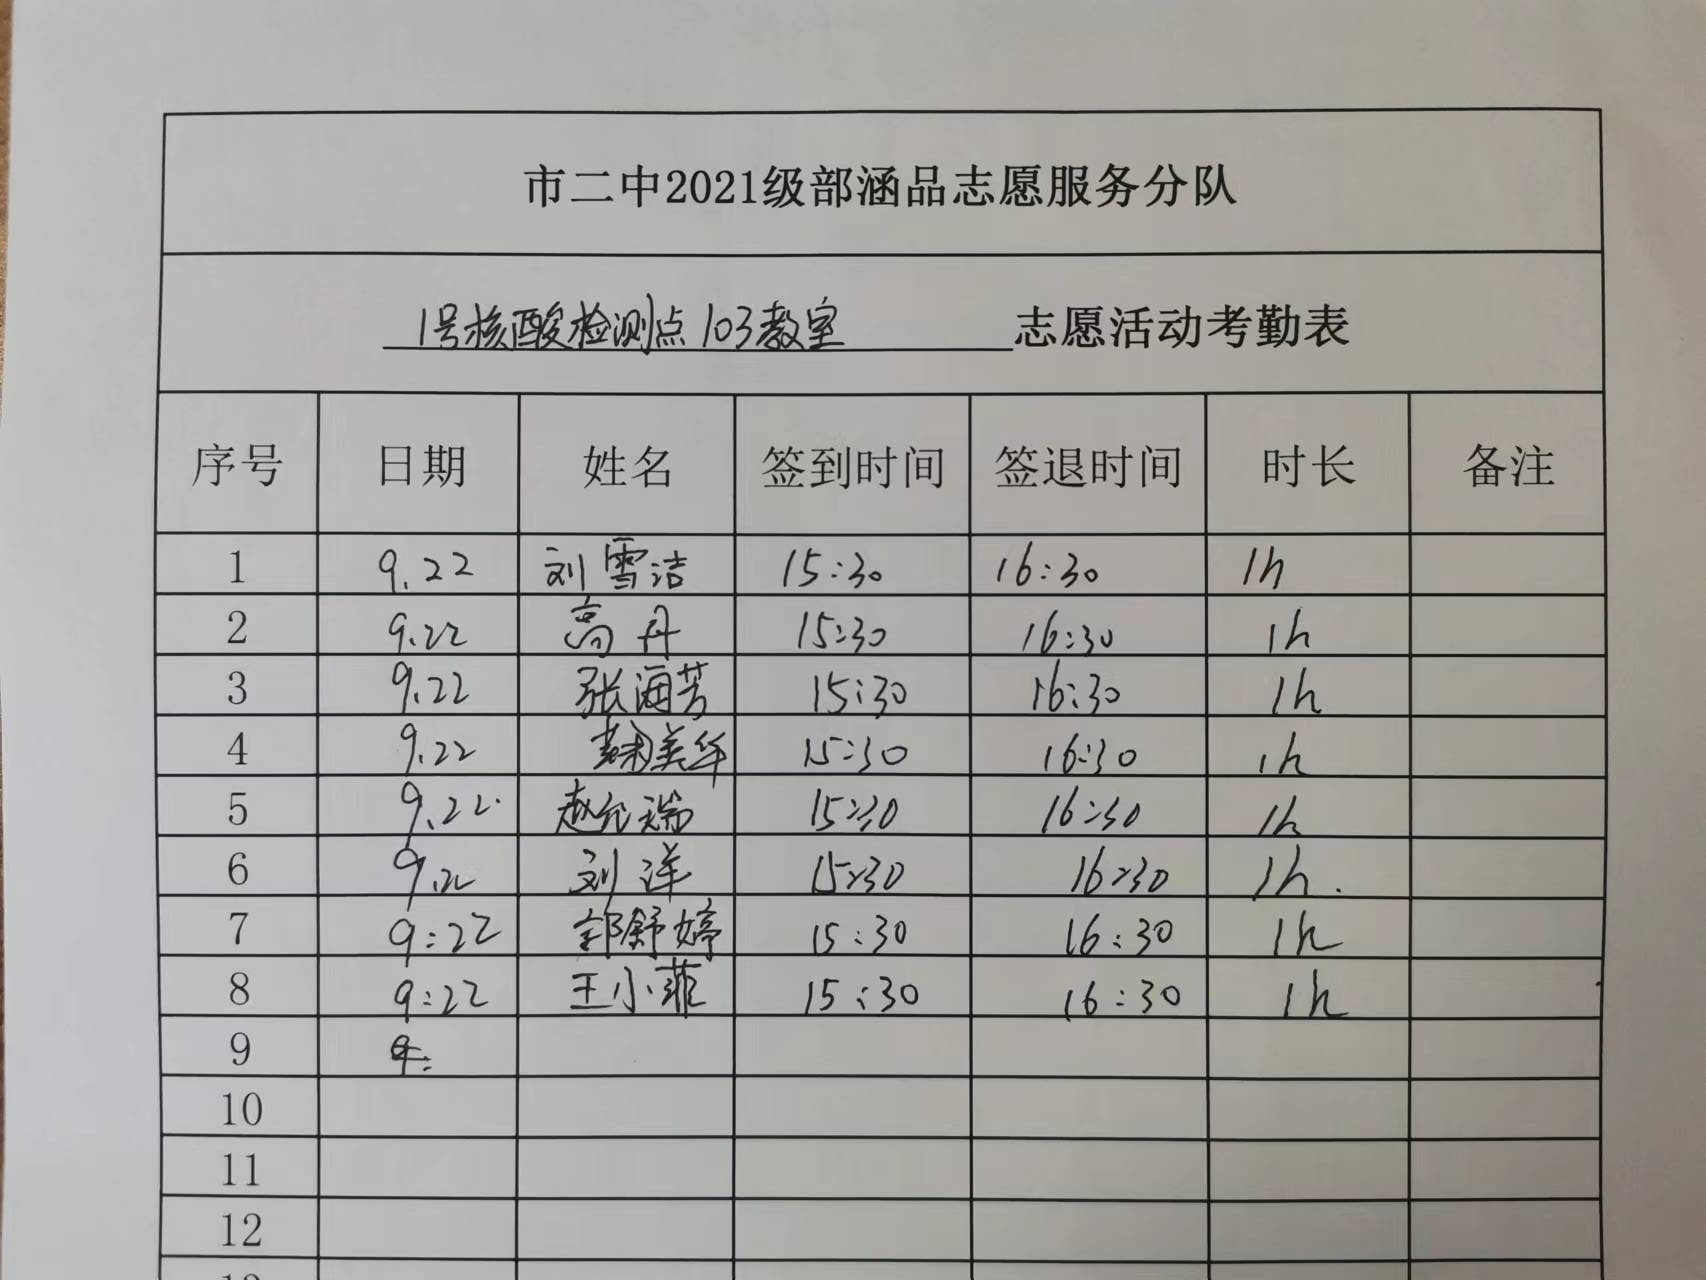 市二中2021级部涵品志愿服务分队
1号核酸检测点103教室 志愿活动考勤表
序号 日期 姓名 签到时间 签退时间 时长 备注
1 9.22 刘雪洁 15:30 16:30 1h
2 9.22 高丹 15:30 16:30 1h
3 9.22 张海芳 15:30 16:30 1h
4 9.22 美华 15:30 16:30 1h
5 9.22. 赵允瑞 15:30 16:30 1h
6 9.22 刘洋 15:30 16:30 1h.
7 9:22 郭舒婷 15:30 16:30 1h
8 9:22 王小菲 15:30 16:30 1h
9
10
11
12